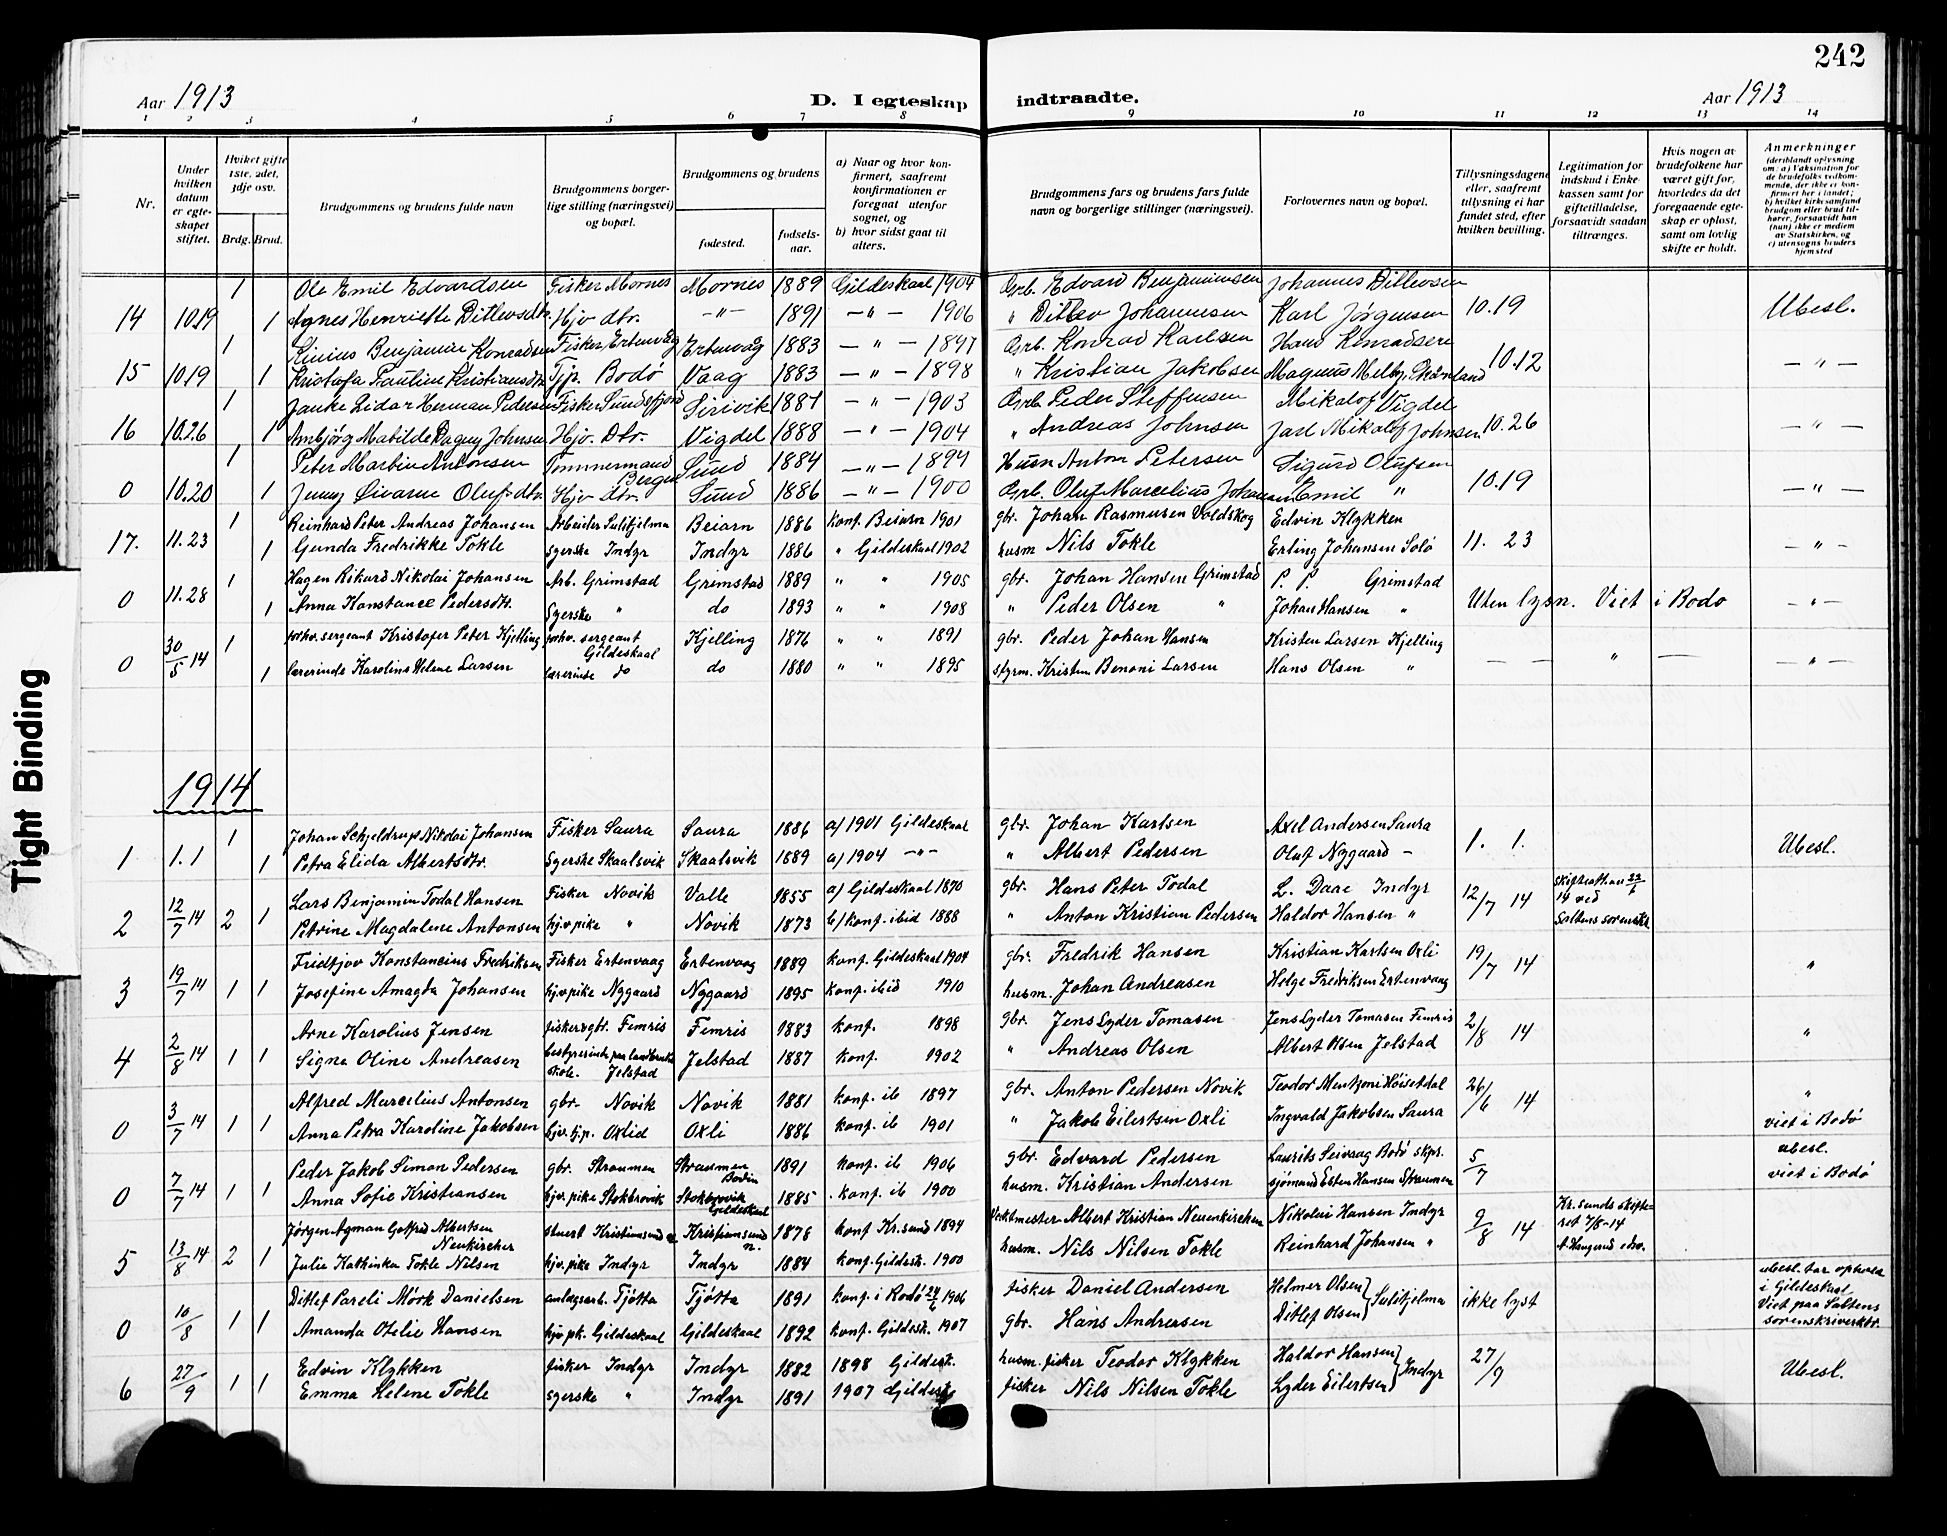 242
Aar 1913
D. I egteskap indtraadte.
Aar 1913
1 2 3 4 5 6 7 8 9 10 11 12 13 14
Nr.
Under hvilken datum er egteskapet stiftet.
Hviket gifte 1ste, 2det, 3dje osv.
Brdg. Brud.
Brudgommens og brudens fulde navn
Brudgommens borgerlige stilling (næringsvei) og bopæl.
Brudgommens og brudens
fødested.
fødselsaar.
a) Naar og hvor konfirmert, saafremt konfirmationen er foregaat utenfor sognet, og
b) hvor sidst gaat til alters.
Brudgommens fars og brudens fars fulde navn og borgerlige stillinger (næringsvei).
Forlovernes navn og bopæl.
Tillysningsdagene eller, saafremt tillysning ei har fundet sted, efter hvilken bevilling.
Legitimation for indskud i Enkekassen samt for giftetilladelse, forsaavidt saadan tiltrænges.
Hvis nogen av brudefolkene har været gift før, hvorledes da det foregaaende egteskap er opløst, samt om lovlig skifte er holdt.
Anmerkninger (deriblandt oplysning om: a) Vaksination for de brudefolks vedkommende, der ikke er konfirmert her i landet; b) hvilket kirkesamfund brudgom eller brud tilhører, forsaavidt han (hun) ikke er medlem av Statskirken, og c) utensogns bruders hjemsted
1 Ole Emil Edvardsen Fisker Mornes Mornes 1889 Gildeskaal 1904 Grb. Edvard Benjaminsen Johannes Ditlevsen
14 10.19 1 Agnes Henriette Ditlevsdtr. Hjv dtr. -"- 1891 -"- 1906 " Ditlev Johannesen Karl Jørgensen 10.19 Ubesl.
1 Benjamin Konradsen Fisker, Ertenvåg Ertenvåg 1883 -"- 1897 Grb. Konrad Karlsen Hans Konradsen
15 10.19 1 Kristofa Pauline Kristiansdtr Tjp. Bodø Vaag 1883 -"- 1898 " Kristian Jakobsen Magnus Melby, 10.12 -"-
1 Lidar Herman Pedersen Fisker Sundsfjord Sirivik 1881 -"- 1903 Grb. Peder Steffensen Mikalof Vigdel
16 10.26 1 Ambjørg Matilde Dagny Johnsen Hjv. Dtr. Vigdel 1888 -"- 1904 " Andreas Johnsen Jarl Mikalof Johnsen 10.26 -"-
1 Peter Martin Antonsen Tømmermand Bergen Sund 1884 -"- 1894 Husm Anton Petersen Sigurd Olufsen
0 10.20 1 Jenny Olufsdtr. Hjv dtr. Sund 1886 -"- 1900 Grb. Oluf Marcelius Johansen Emil " 10.19 -"-
1 Reinhard Peter Andreas Johansen Arbeider Sulitjelma Beiarn 1886 konf. Beiarn 1901 gbr. Johan Rasmusen Voldskog Edvin Klykken
17. 11.23 1 Gunda Fredrikke Tokle syerske Indyr Indyr 1886 " Gildeskaal 1902 husm Nils Tokle Erling Johansen Solø 11. 23 -"-
1 Hagen Rikard Nikolai Johansen Arb. Grimstad Grimstad 1889 " " 1905 gbr. Johan Hansen Grimstad P. P. Grimstad
0 11.28 1 Anna Konstance Pedersdtr. Syerske " do 1893 " " 1908 " Peder Olsen " Johan Hansen " Uten lysn. Viet i Bodø -"-
1 forhv. sergeant Kristofer Peter Kjelling forhv. sergeant Gildeskaal Kjelling 1876 " " 1891 gbr. Peder Johan Hansen Kristen Larsen Kjelling
0 30/5 14 1 lærerinde Karolins Helene Larsen lærerinde do do 1880 " " 1895 styrm. Kristen Benoni Larsen Hans Olsen " — — " — -"-
1914
1 Johan Schjeldrup Nikolai Johansen Fisker Saura Saura 1886 a) 1901 Gildeskaal gbr. Johan Karlsen Axel Andersen Saura
1 1.1 1 Petra Elida Albertsdtr. Syerske Skaalsvik Skaalsvik 1889 a) 1904 -"- " Albert Pedersen Oluf Nygaard - 1. 1. Ubesl.
Lars Benjamin Todal Hansen Fisker Novik Valle 1855 a) Gildeskaal 1870 gbr. Hans Peter Todal L. Daae Indyr 22/6 19 ved
2 12/7 14 2 1 Petrine Magdalene Antonsen hjv pike " Novik 1873 b) konf. ibid 1888 " Anton Kristian Pedersen Haldor Hansen " 12/7 14 Saltens
Fridtjov Konstancius Fredriksen Fisker Ertenvaag Ertenvaag 1889 konf. Gildeskaal 1904 gbr. Fredrik Hansen Kristian Karlsen Oxli
3 19/7 14 1 1 Josefine Amagda Johansen hjv. pike Nygaard Nygaard 1895 konf. ibid 1910 husm. Johan Andreasen Helge Fredriksen Ertenvaag 19/7 14 "
Arne Karolius Jensen fisker & gbr. Femris Femris 1883 konf. 1898 gbr. Jens Lyder Tomasen Jens Lyder Tomasen Femris
4 2/8 14 1 1 Signe Oline Andreasen bestyrerinde paa landbruksskole. Jelstad Jelstad 1887 konf. 1902 " Andreas Olsen Albert Olsen Jelstad 2/8 14 "
Alfred Marcelius Antonsen gbr. Novik Novik 1881 konf. ib 1897 gbr. Anton Pedersen Novik Teodor Mentzoni Høisetdal "
0 3/7 14 1 1 Anna Petra Karoline Jakobsen hjv. tjp. Oxlid Oxli 1886 konf. ib 1901 " Jakob Eilertsen Oxli Ingvald Jakobsen Saura 26/6 14 viet i Bodø
Peder Jakob Simon Pedersen gbr. Straumen Straumen Bodin 1891 konf. ib 1906 gbr. Edvard Pedersen Laurits Seivaag Bodø skpr. ubesl.
0 7/7 14 1 1 Anna Sofie Kristiansen hjv. pike Stokkvik Gildeskaal 1885 konf. ib 1900 husm. Kristian Andersen sjømand Esten Hansen Straumen 5/7 viet i Bodø
Jørgen Agman Gotfred Albertsen Neukircher stuert Kristiansund n. Kristiansund n. 1878 konf Kr.sund 1894 Verktmester Albert Kristian Neuenkirchen Nikolai Hansen Indyr Kr.sunds skifteret 7/8-14
5 13/8 14 2 1 Julie Kathinka Tokle Nilsen hjv. pike Indyr Indyr 1884 konf. Gildesk. 1900 husm. Nils Nilsen Tokle Reinhard Johansen " 9/8 14
Ditlef Pareli Mørk Danielsen anlægsarb. Tjøtta Tjøtta 1891 konf. i Bodø 24/6 1906 fisker Daniel Andersen Helmer Olsen Sulitjelma ubesl. har ophold i Gildeskaal
0 10/8 1 1 Amanda Otelie Hansen hjv. pk. Gildeskaal Gildeskaal 1892 konf. Gildesk. 1907 gbr. Hans Andreasen Ditlef Olsen ikke lyst Viet paa Saltens sorenskriverktr.
Edvin Klykken fisker Indyr Indyr 1882 1898 Gildesk. husm. fisker Teodor Klykken Haldor Hansen Indyr
6 27/9 1 1 Emma Helene Tokle syerske " Indyr 1891 1907 Gildesk. fisker Nils Nilsen Tokle Lyder Eilertsen 27/9 Ubesl.
Tight Binding